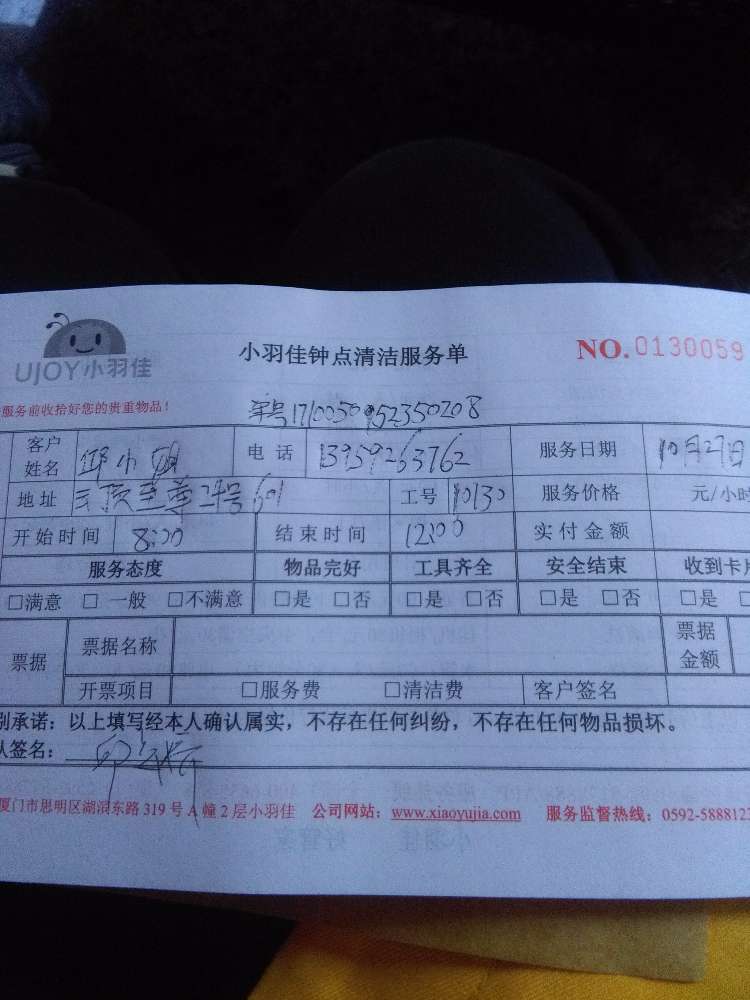 UJOY小羽佳
小羽佳钟点清洁服务单
NO.0130059
服务前收拾好您的贵重物品!
单号1710050952350208
客户姓名 邱小 电话 13959263762 服务日期 10月27日
地址 云顶至尊 号601 工号 10130 服务价格 元/小时
开始时间 8:00 结束时间 12:00 实付金额
服务态度 物品完好 工具齐全 安全结束 收到卡片
□满意 □一般 □不满意 □是 □否 □是 □否 □是 □否 □是 □
票据 票据名称 票据金额
开票项目 □服务费 □清洁费 客户签名
别承诺:以上填写经本人确认属实,不存在任何纠纷,不存在任何物品损坏。
人签名:
厦门市思明区湖滨东路319号A幢2层小羽佳 公司网站:www.xiaoyujia.com 服务监督热线:0592-5888123